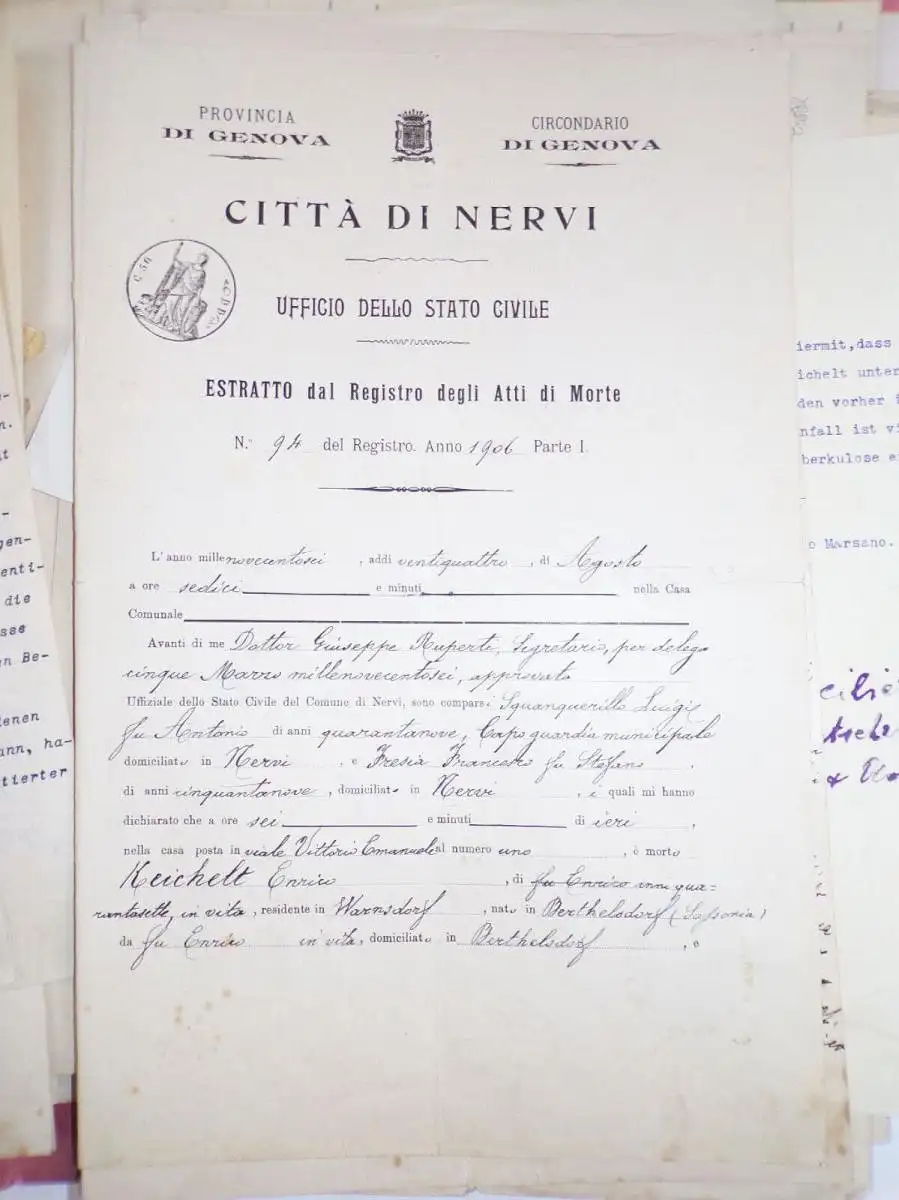 PROVINCIA
DI GENOVA
CIRCONDARIO
DI GENOVA
CITTÀ DI NERVI
C. 50
UFFICIO DELLO STATO CIVILE
ESTRATTO dal Registro degli Atti di Morte
N.º 94 del Registro. Anno 1906 Parte I.
L'anno millenovecentosei, addi ventiquattro, di Agosto
a ore sedici e minuti nella Casa
Comunale
Avanti di me Dottor Giuseppe Ruperti, Segretario, per delega
cinque Marzo millenovecentosei, approvata
Uffiziale dello Stato Civile del Comune di Nervi, sono comparsi Squanquerillo Luigi
fu Antonio di anni quarantanove, Capo guardia municipale
domiciliato in Nervi, e Fresia Francesco fu Stefano,
di anni cinquantanove, domiciliato in Nervi, i quali mi hanno
dichiarato che a ore sei e minuti di ieri,
nella casa posta in viale Vittorio Emanuele al numero uno, è morto
Reichelt Enrico, di fu Enrico anni qua=
rantasette, in vita, residente in Warnsdorf, nato in Berthelsdorf (Sassonia)
da fu Enrico in vita, domiciliato in Berthelsdorf, e
iermit, dass
ichelt unter
den vorher
nfall ist
berkulose
Marzano.
gen-
enti-
die
n Be-
denen
ann, ha-
tierter